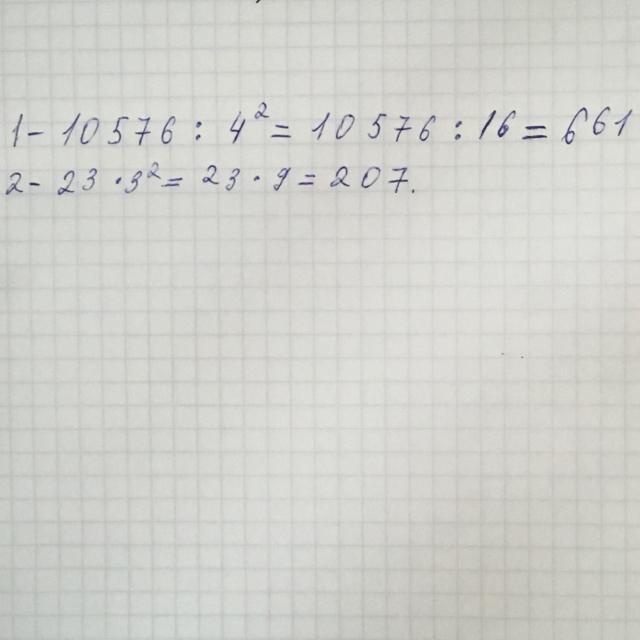 1- 10576 : 4² = 10576 : 16 = 661
2- 23 · 3² = 23 · 9 = 207.